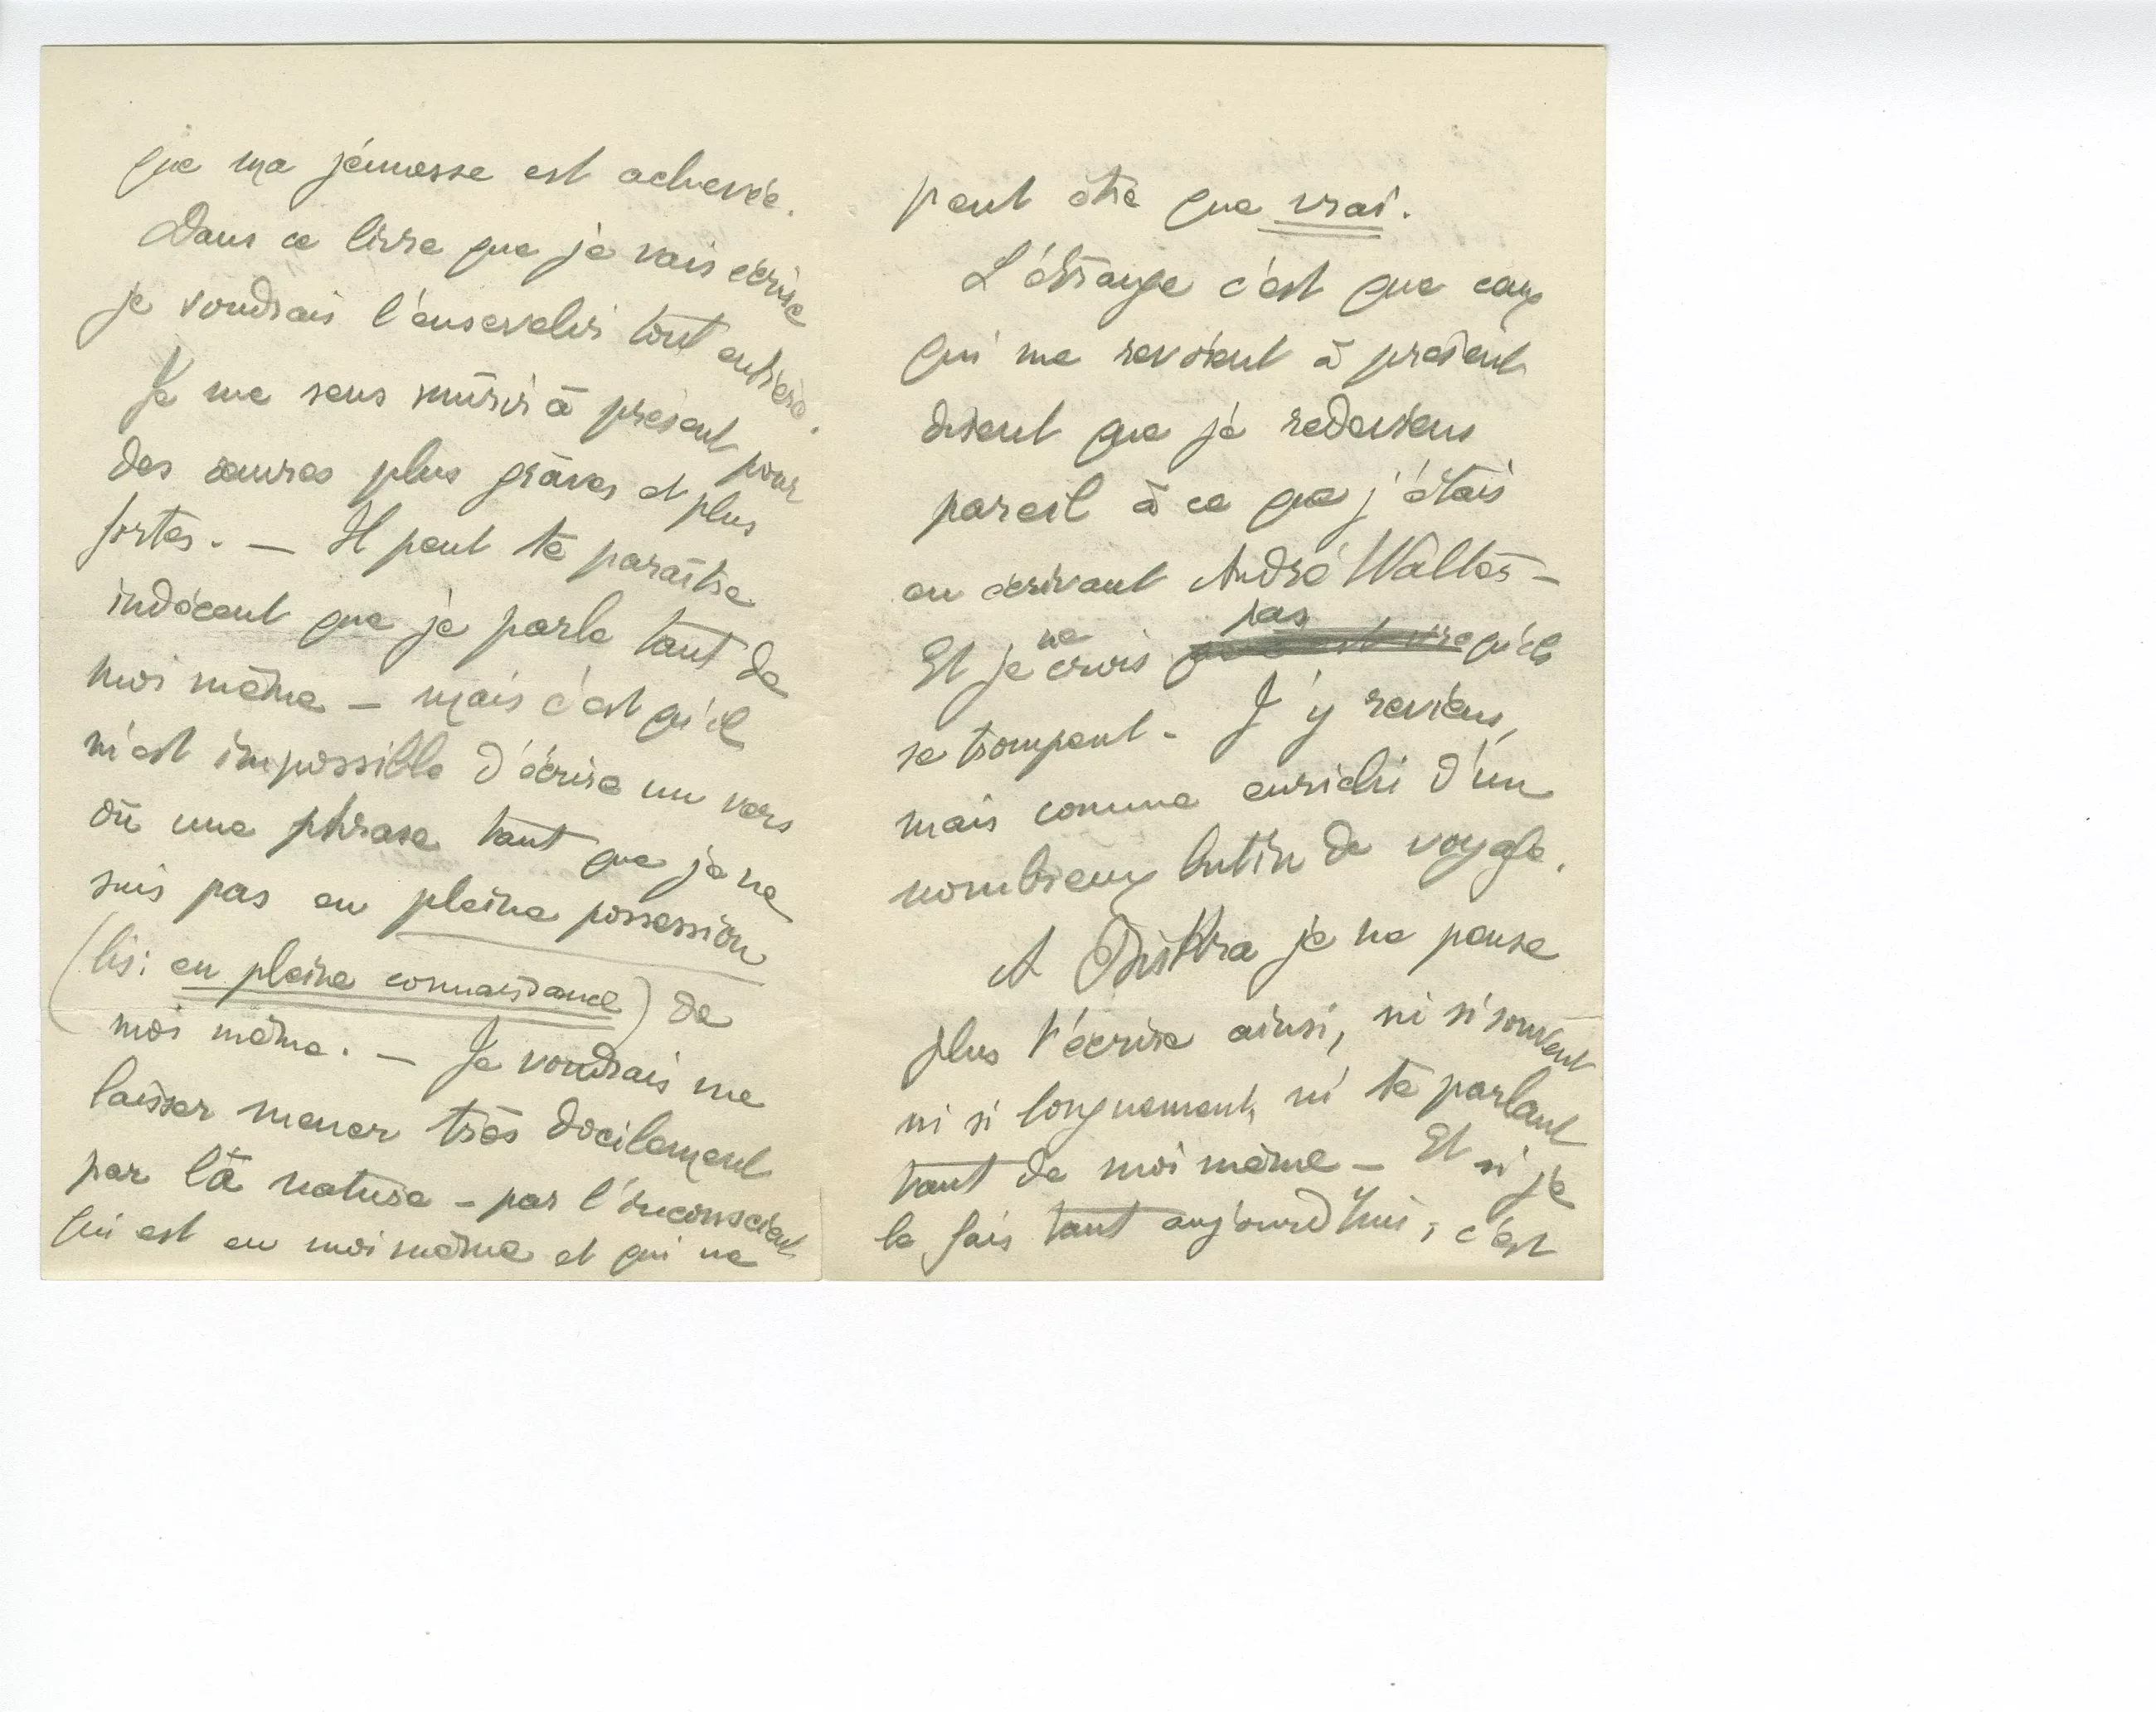 que ma jeunesse est achevée.
Dans ce livre que je vais écrire
je voudrais l'ensevelir tout entière.
Je me sens mûrir à présent pour
des œuvres plus graves et plus
fortes. — Il peut te paraître
indécent que je parle tant de
moi même — mais c'est qu'il
m'est impossible d'écrire un vers
où une phrase tant que je ne
suis pas en pleine possession
(lis: en pleine connaissance) de
moi même. — Je voudrais me
laisser mener très docilement
par la nature — par l'inconscient
qui est en moi même et qui ne
peut être que vrai.
L'étrange c'est que ceux
qui me revoient à présent
disent que je redeviens
pareil à ce que j'étais
en écrivant André Walter —
Et je ne crois pas qu'ils
se trompent. J'y reviens,
mais comme enrichi d'un
nombreux butin de voyage.
A Biskra je ne pense
plus t'écrire ainsi, ni si souvent
ni si longuement, ni te parlant
tant de moi même — Et si je
le fais tant aujourd'hui, c'est